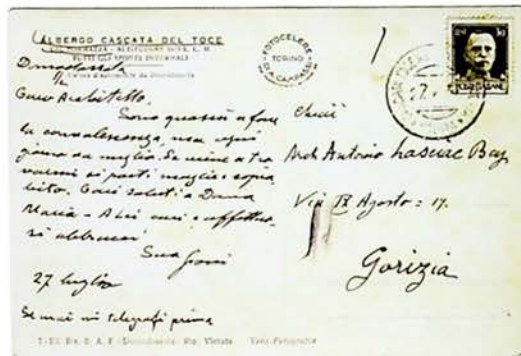 ALBERGO CASCATA DEL TOCE
FOTOCELERE
TORINO
Domodossola
Caro Architetto,
Sono quassù a fare
la convalescenza, ma ogni
giorno va meglio. Se viene a tro
varmi si porti maglie e sopra
bito. Cari saluti a Donna
Maria - A lei cari e affettuo
si abbracci
Suo
27 luglio
Se mai mi telegrafi prima
Arch Antonio Lasciac Bey
Via IX Agosto = 17.
Gorizia
Rip. Vietata Vera Fotografia